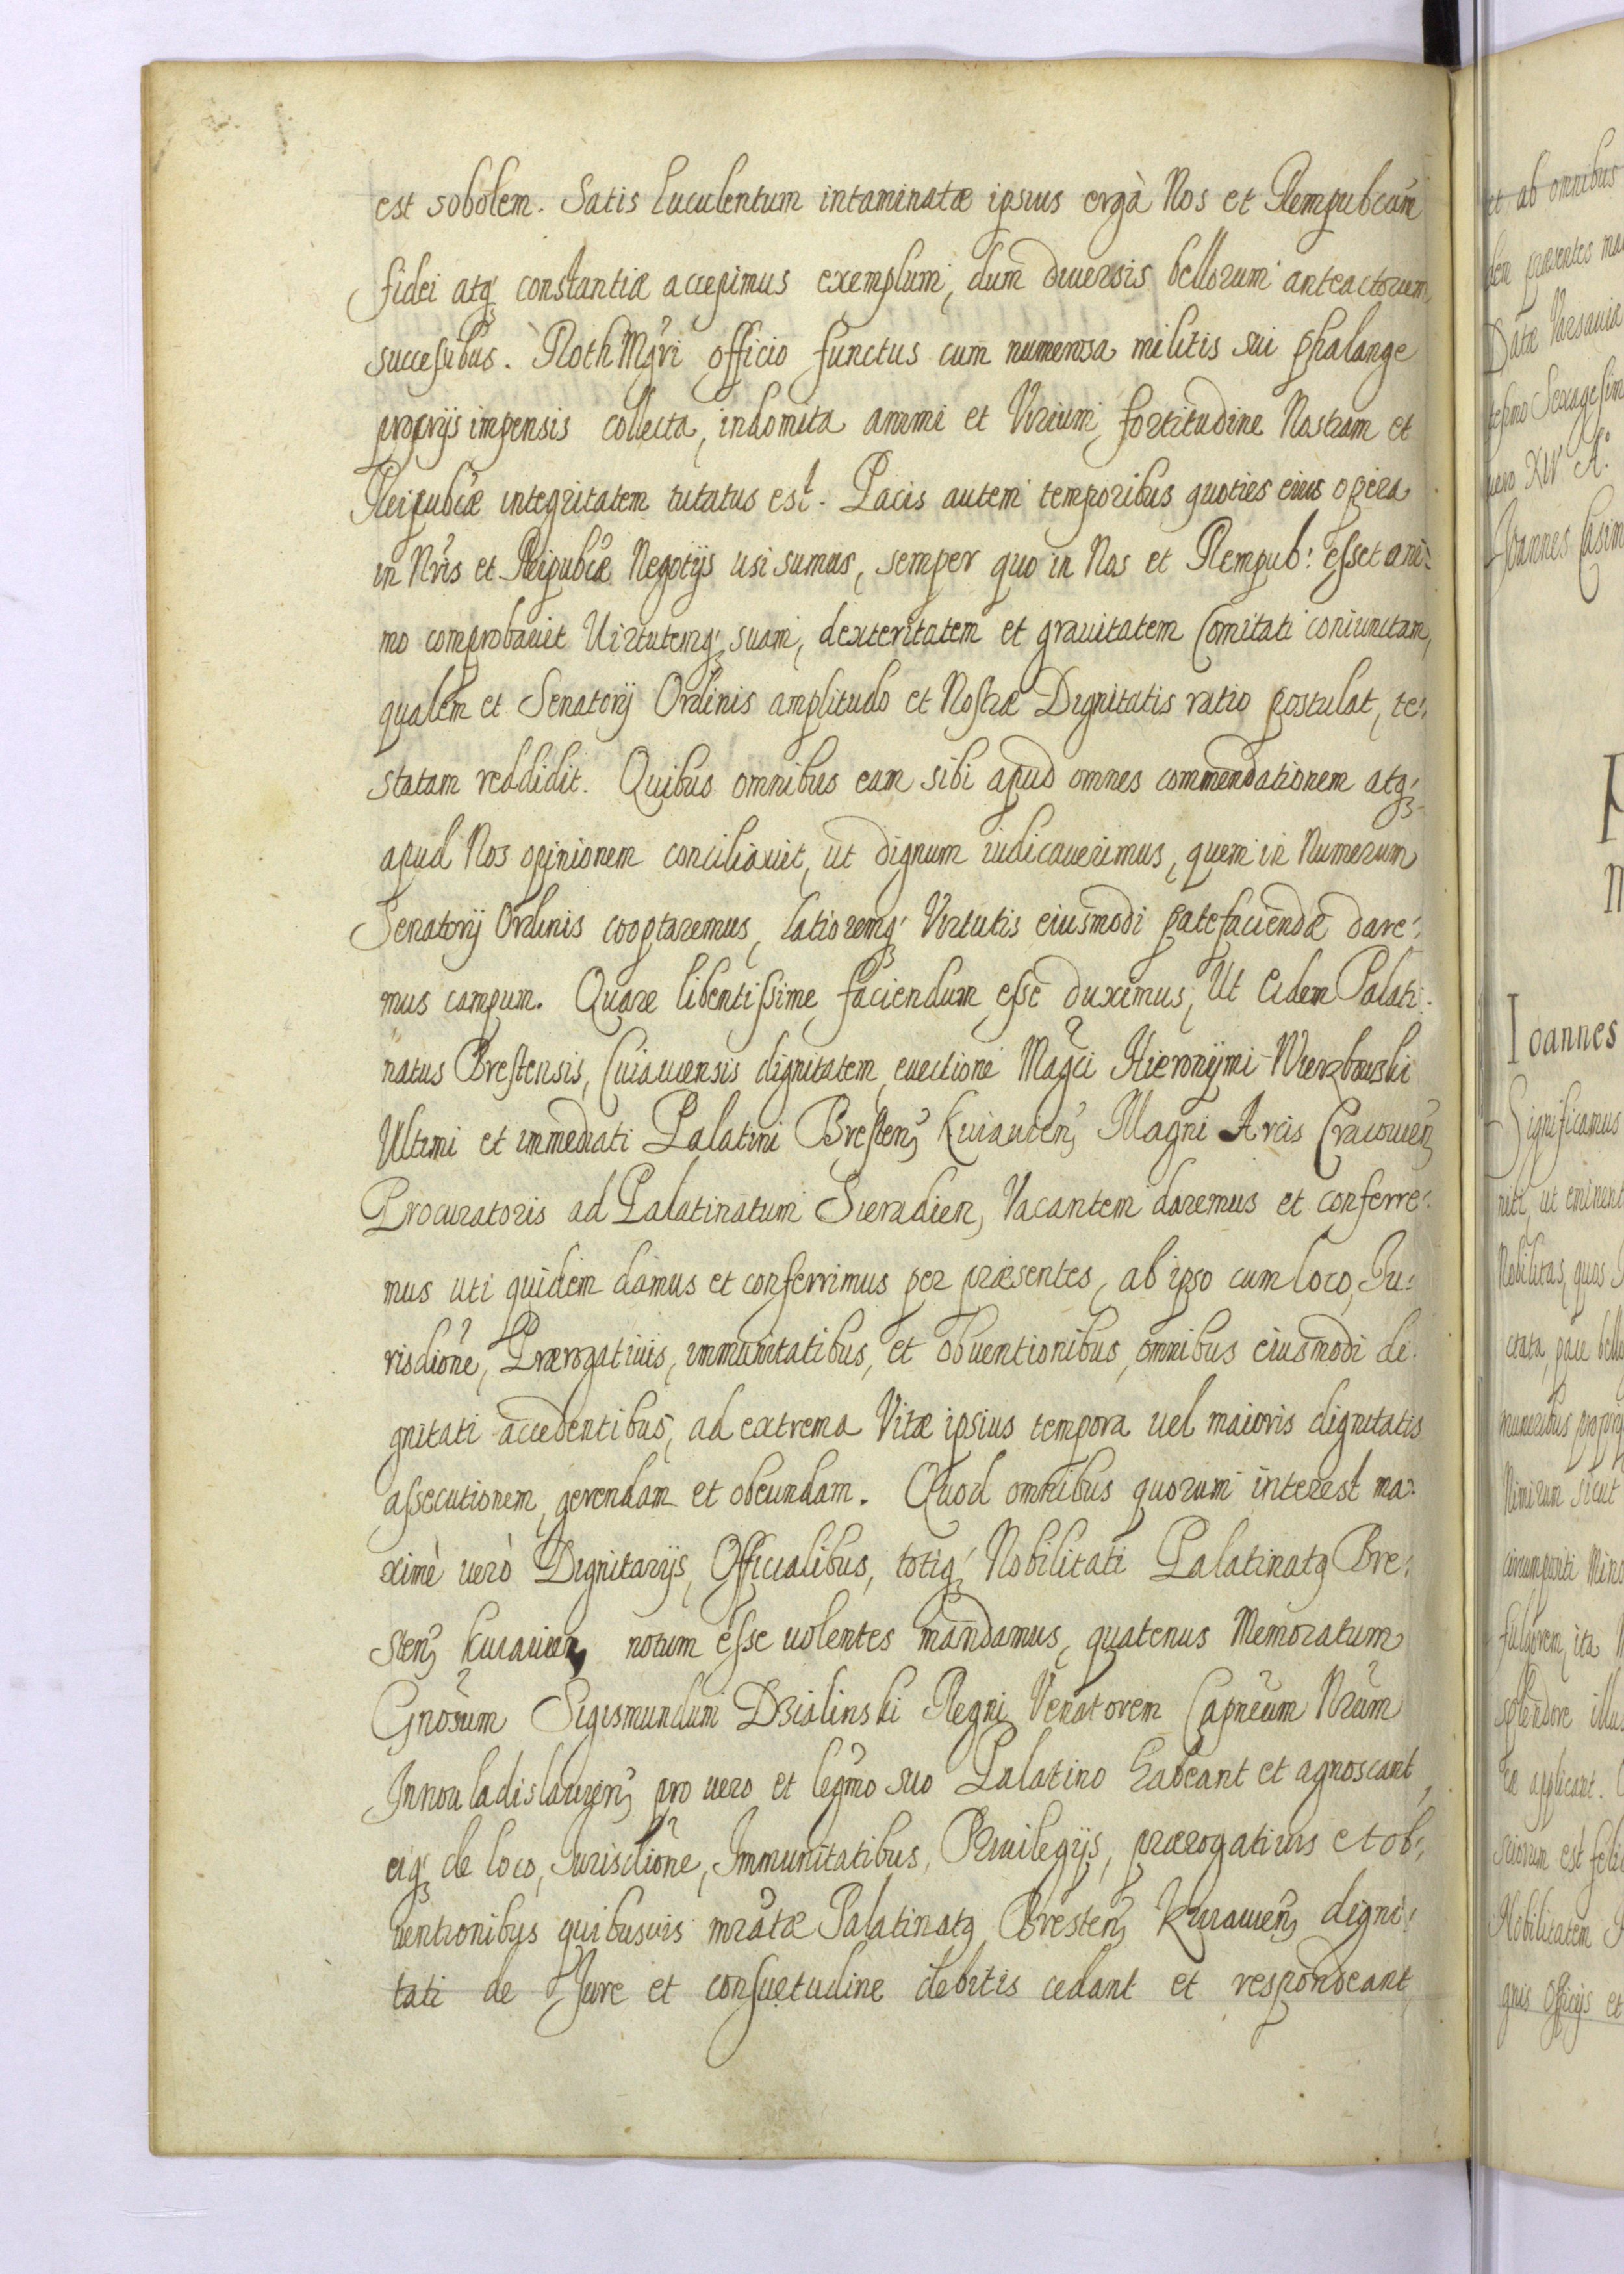 est sobolem. Satis luculentum intaminatæ ipsius ergà Nos et Rempubcam
fidei atq; constantiæ accepimus exemplum, dum diuersis bellorum anteactorum
successibus. RothMgri officio functus cum numerosa militis sui phalange
proprijs impensis collecta, indomita animi et Virium fortitudine Nostram et
Reipubcæ integritatem tutatus est. Pacis autem temporibus quoties eius opera
in Nris et Reipubcæ Negotijs usi sumus, semper quo in Nos et Rempub: esset ani:
mo comprobauit Uirtutemq; suam, dexteritatem et grauitatem Comitati coniunctam,
qualem et Senatorij Ordinis amplitudo et Nostræ Dignitatis ratio postulat, te:
statam reddidit. Quibus omnibus eam sibi apud omnes commendationem atq;
apud Nos opinionem conciliauit, ut dignum iudicauerimus, quem in Numerum
Senatorij Ordinis cooptaremus, latioremq; Virtutis eiusmodi patefaciendæ dare:
mus campum. Quare libentissime faciendum esse duximus, Ut Eidem Palati:
natus Brestensis, Cuiauensis dignitatem, euectione Magci Hieronymi Wierzbowski
Ultimi et immediati Palatini Bresten, Kuiauien, Magni Arcis Cracouien,
Procuratoris ad Palatinatum Sieradien, Vacantem daremus et conferre:
mus uti quidem damus et conferrimus per præsentes, ab ipso cum loco, Iu:
risdione, Prærogatiuis, immunitatibus, et obuentionibus, omnibus eiusmodi di:
gnitati accedentibus, ad extrema Vitæ ipsius tempora uel maioris dignitatis
assecutionem, gerendam et obeundam. Quod omnibus quorum interest ma:
ximè uerò Dignitarijs, Officialibus, totiq; Nobilitati Palatinatq Bre:
sten, Kuiauien, notum esse uolentes mandamus, quatenus Memoratum
Gnosum Sigismundum Dzialinski Regni Venatorem Capneum Nrum
Innouladislauien, pro uero et legmo suo Palatino habeant et agnoscant,
eiq; de loco, Iurisdione, Immunitatibus, Priuilegijs, prærogatiuis et ob:
uentionibus quibusuis mratæ Palatinatq Bresten, Kuiauien, digni:
tati de Jure et consuetudine debitis cedant et respondeant
et ab omnibus
præsentes
Data Varsauiæ
Sexagesim
uero XIV A.o
Ioannes Casim
Ioannes
Significamus
ut eminent
Nobilitas, quos
pace bello
muneribus
Nimirum sicut
fulgorem, ita
splendore
applicant.
est
Nobilitatem
gnis Officijs et